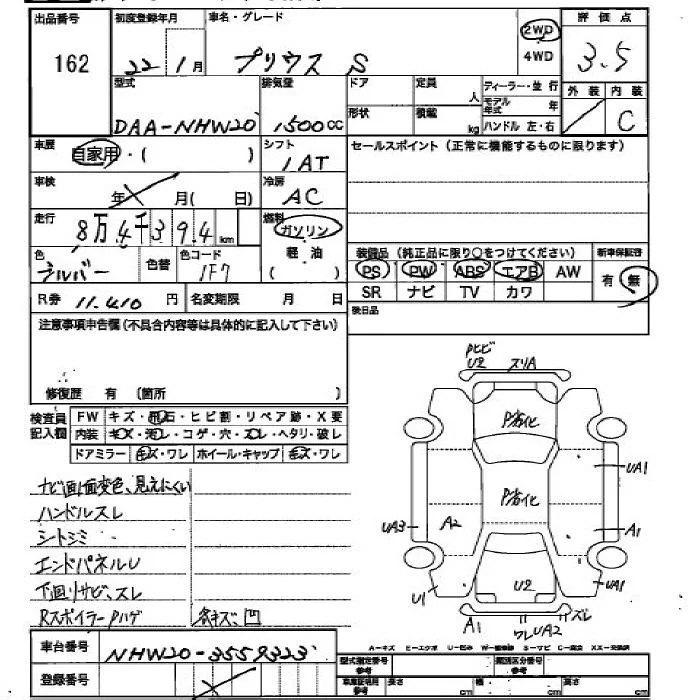 出品番号 初度登録年月 車名・グレード 2WD 評価点
162 22 1月 プリウス S 4WD 3.5
型式 排気量 ドア 定員 人 ディーラー・並行 外装 内装
DAA-NHW20 1500cc 形状 積載 kg モデル年式 年 C
ハンドル 左・右
車歴 自家用・( ) シフト 1AT セールスポイント(正常に機能するものに限ります)
車検 年 月( 日) 冷房 AC
走行 8万4千394km 燃料 ガソリン
色 シルバー 色替 色コード 1F7 軽油 装備品(純正品に限り○をつけてください) 新車保証書
( ) PS PW ABS エアB AW 有・無
R券 11.410円 名変期限 月 日 SR ナビ TV カワ
注意事項申告欄(不具合内容等は具体的に記入して下さい) 後日品
修復歴 有 〔箇所 〕
検査員記入欄 FW キズ・飛石・ヒビ割・リペア跡・X要
内装 キズ・汚レ・コゲ・穴・スレ・ヘタリ・破レ
ドアミラー キズ・ワレ ホイール・キャップ キズ・ワレ
ナビ画面変色、見えにくい
ハンドルスレ
シートシミ
エンドパネルU
下回リサビ、スレ
RスポイラーPハゲ 各キズ、凹
Pヒビ
U2 スリA
P劣化
UA1
P劣化
UA3 A2 A1
U1 U2 UA1
A1 ワレUA2 ズレ
A-キズ E-エクボ U-凹み W-補修跡 S-サビ C-腐食 XX-交換済
車台番号 NHW20-3559323
型式指定番号 参考 類別区分番号 参考
登録番号 車庫証明用 参考 長さ cm 幅 cm 高さ cm